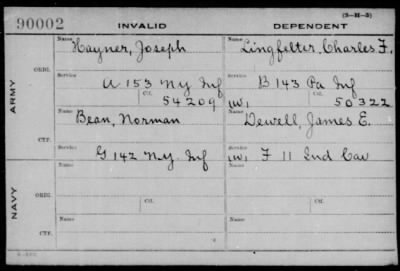 90002 INVALID DEPENDENT (3-H-3)
Name Hayner, Joseph Name Lingfelter, Charles F.
ARMY
ORIG.
Service A 153 N.Y. Inf Service B 143 Pa Inf
Ctf. 54209 (W) Ctf. 50322
Name Bean, Norman Name Dewell, James E.
CTF.
Service G 142 N.Y. Inf Service (W) F 11 Ind Cav
NAVY
Name Name
ORIG.
Service Ctf. Service Ctf.
Name Name
CTF.
Service Service